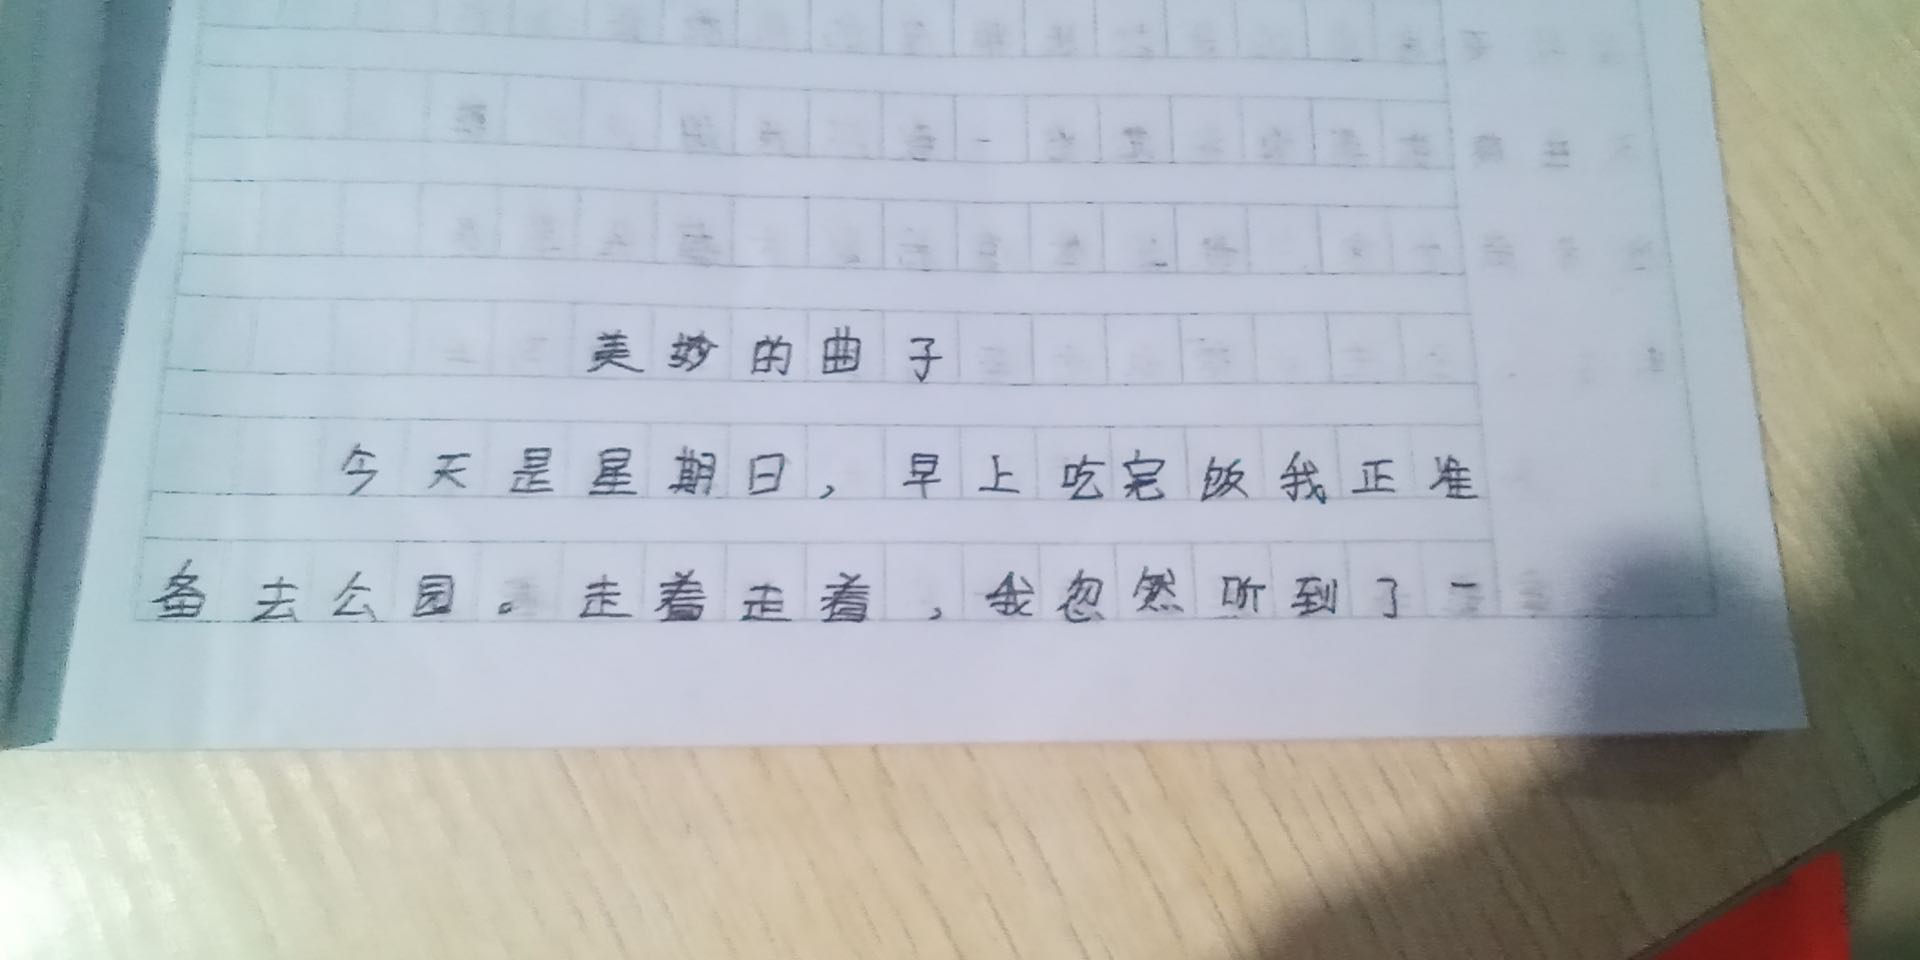 美妙的曲子
今天是星期日，早上吃完饭我正准
备去公园。走着走着，我忽然听到了一